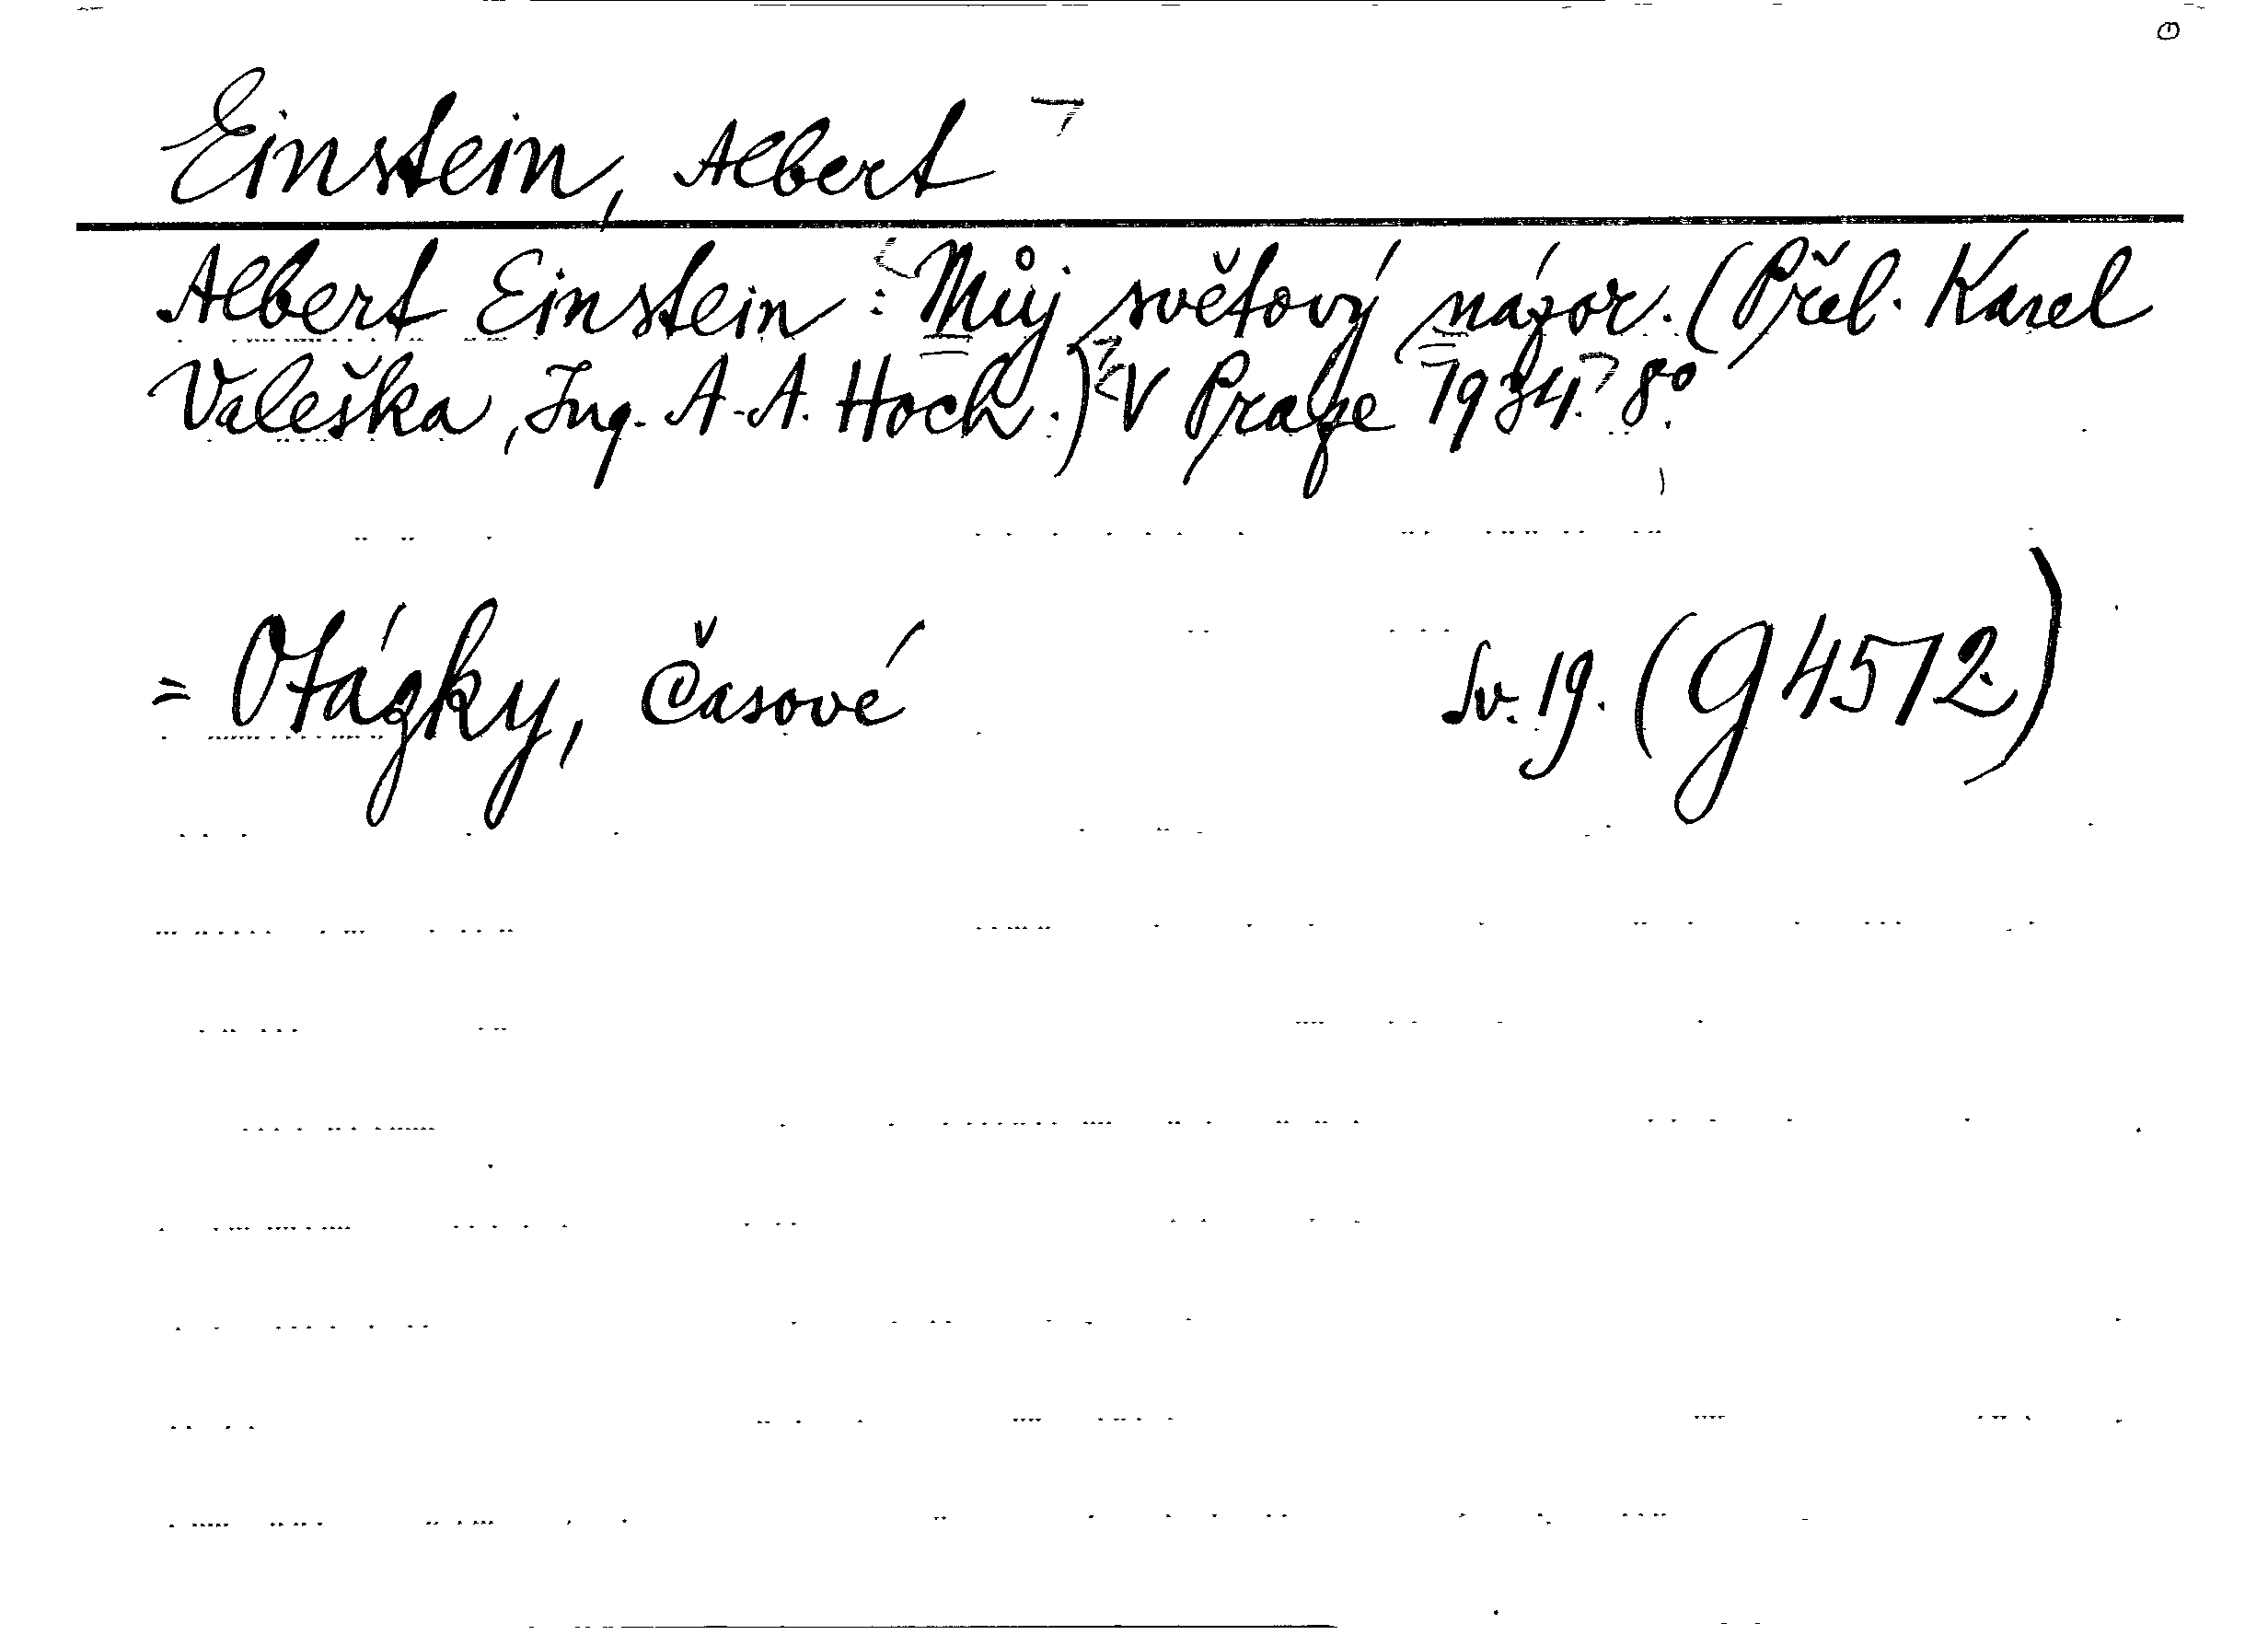 Einstein, Albert
Albert Einstein: Můj světový názor. (Přel. Karel
Valeška, Ing. A. A. Hoch.) V Praze 1934. 8°.
= Otázky, časové Sv. 19. (G 4572)